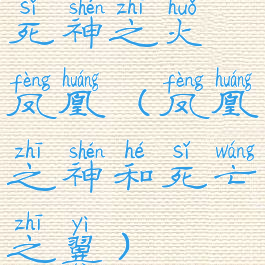 sǐ shén zhī huǒ
死神之火
fèng huáng fèng huáng
凤凰（凤凰
zhī shén hé sǐ wáng
之神和死亡
zhī yì
之翼）